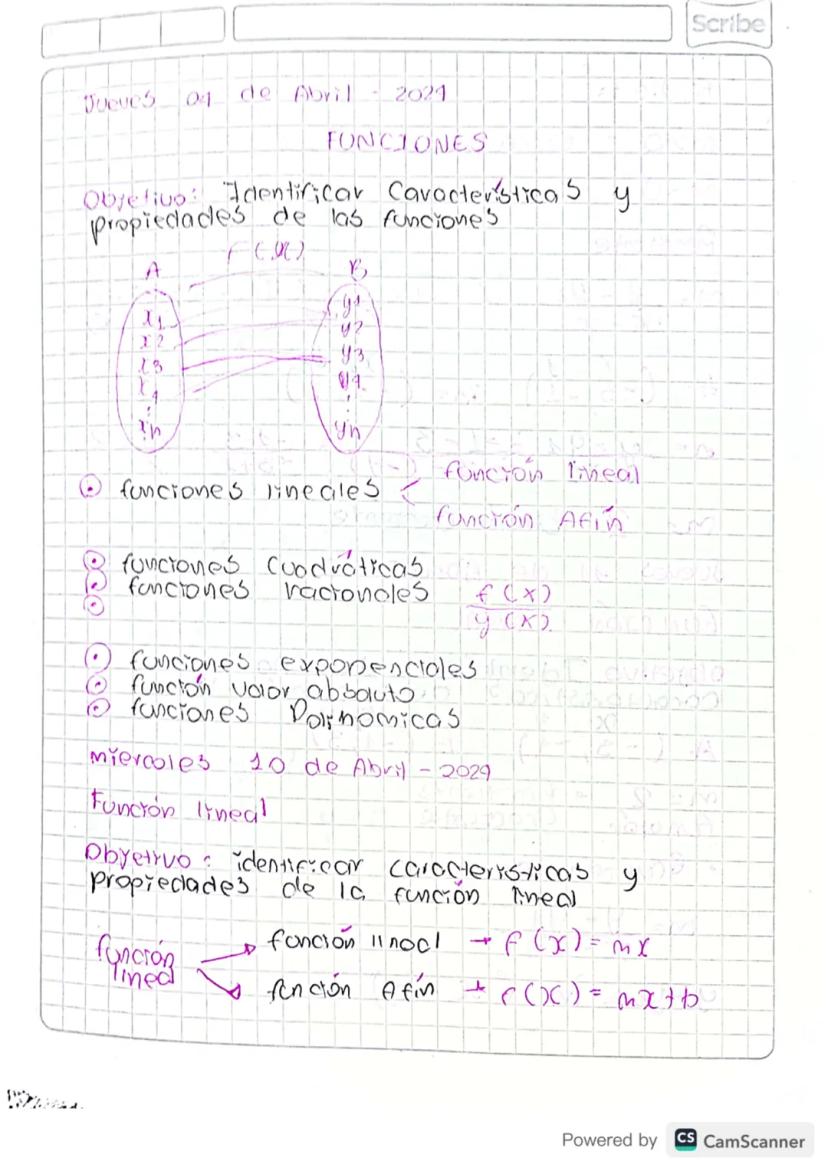 Scribe
Jueves 04 de Abril - 2024
FUNCIONES
Objetivo: Identificar Características y
propiedades de las funciones
f(x)
A B
x1 y1
x2 y2
x3 y3
x4 y4
⋮ ⋮
xn yn
función lineal
⊙ funciones lineales <
función Afín
⊙ funciones Cuadráticas
⊙ funciones racionales f(x)
⊙ y(x).
⊙ funciones exponenciales
⊙ función valor absauto
⊙ funciones Polinomicas
miercoles 10 de Abril - 2024
Función lineal
Objetivo: identificar caracteristicas y
propiedades de la función lineal
función lineal → f(x) = mx
función
lineal
fención Afín → f(x) = mx+b
Powered by CS CamScanner